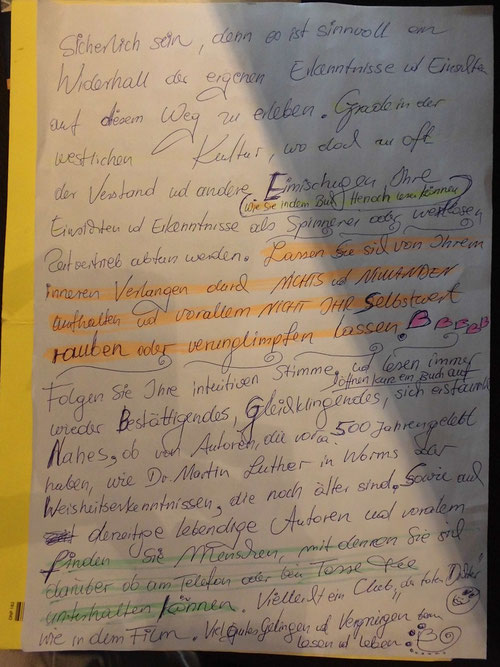 Sicherlich sein, denn so ist sinnvoll am
Widerhall der eigenen Erkenntnisse ud Einsichten
auf diesem Weg zu erleben. Grade in der
westlichen Kultur, wo doch zu oft
der Verstand ud andere Eimischugen Ihre
(Wie Sie in dem Buch Henoch lesen können)
Einsichten ud Erkenntnisse als Spinnerei oder wertlosen
Zeitvertrieb abtun werden. Lassen Sie sich von Ihrem
inneren Verlangen durch NICHTS ud NIEMANDEN
aufhalten ud vorallem NICHT IHR Selbstwert
rauben oder verunglimpfen lassen. B B B B B
Folgen Sie Ihre intuitiven Stimme, ud lesen immer
öffnen kurz ein Buch auf
wieder Bestättigendes, Gleichklingendes, sich erstaunlich
Nahes, ob von Autoren, die vor ca. 500 Jahren gelebt
haben, wie Dr. Martin Luther in Worms
Weisheitserkenntnissen, die noch älter sind. Sowie auch
derzeitige lebendige Autoren und vorallem
finden Sie Menschen, mit denen Sie sich
darüber ob am Telefon oder bei Tasse Tee
unterhalten können. Vielleicht ein Club "der toten Dichter"
wie in dem Film. Viel gutes Gelingen ud Vergnügen beim
lesen ud leben.